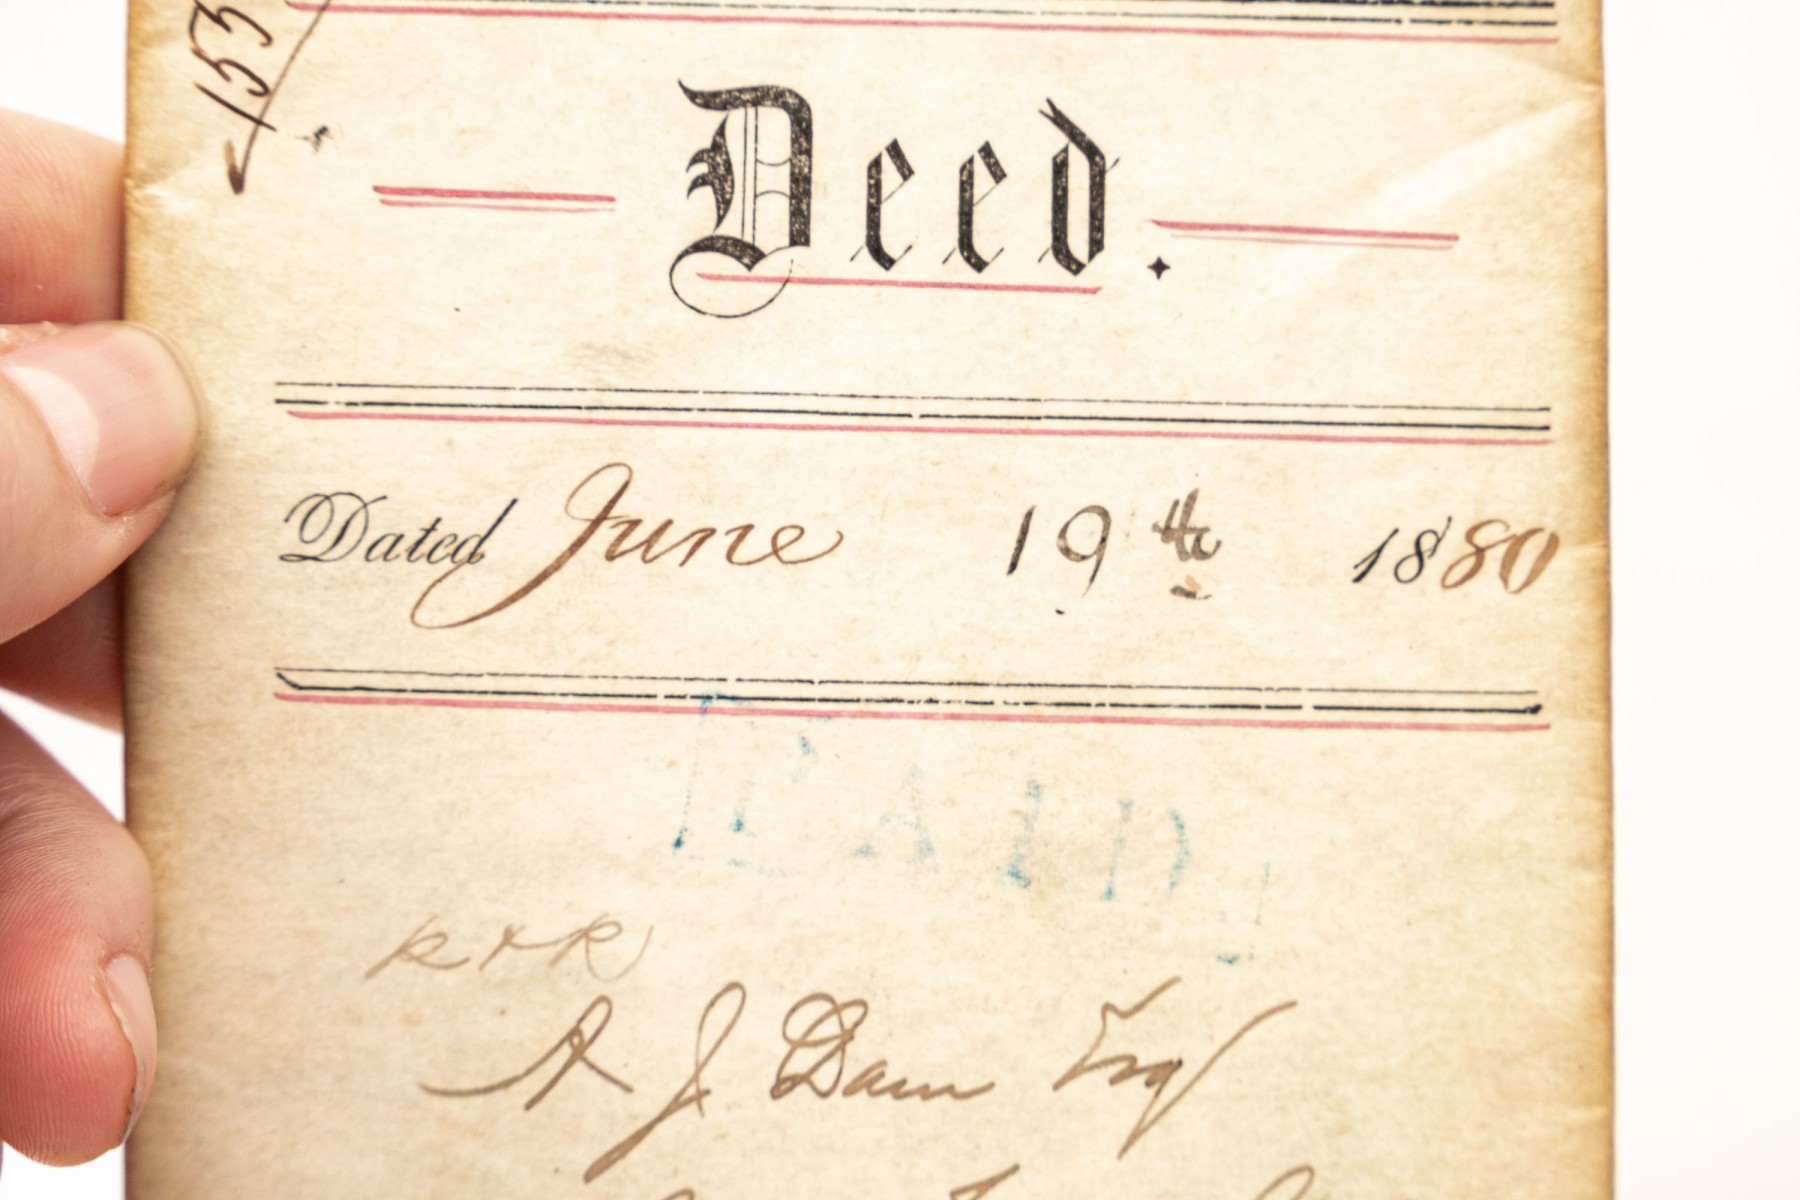 153
Deed.
Dated June 19th 1880
PAID
R & R
A J Dam Esq